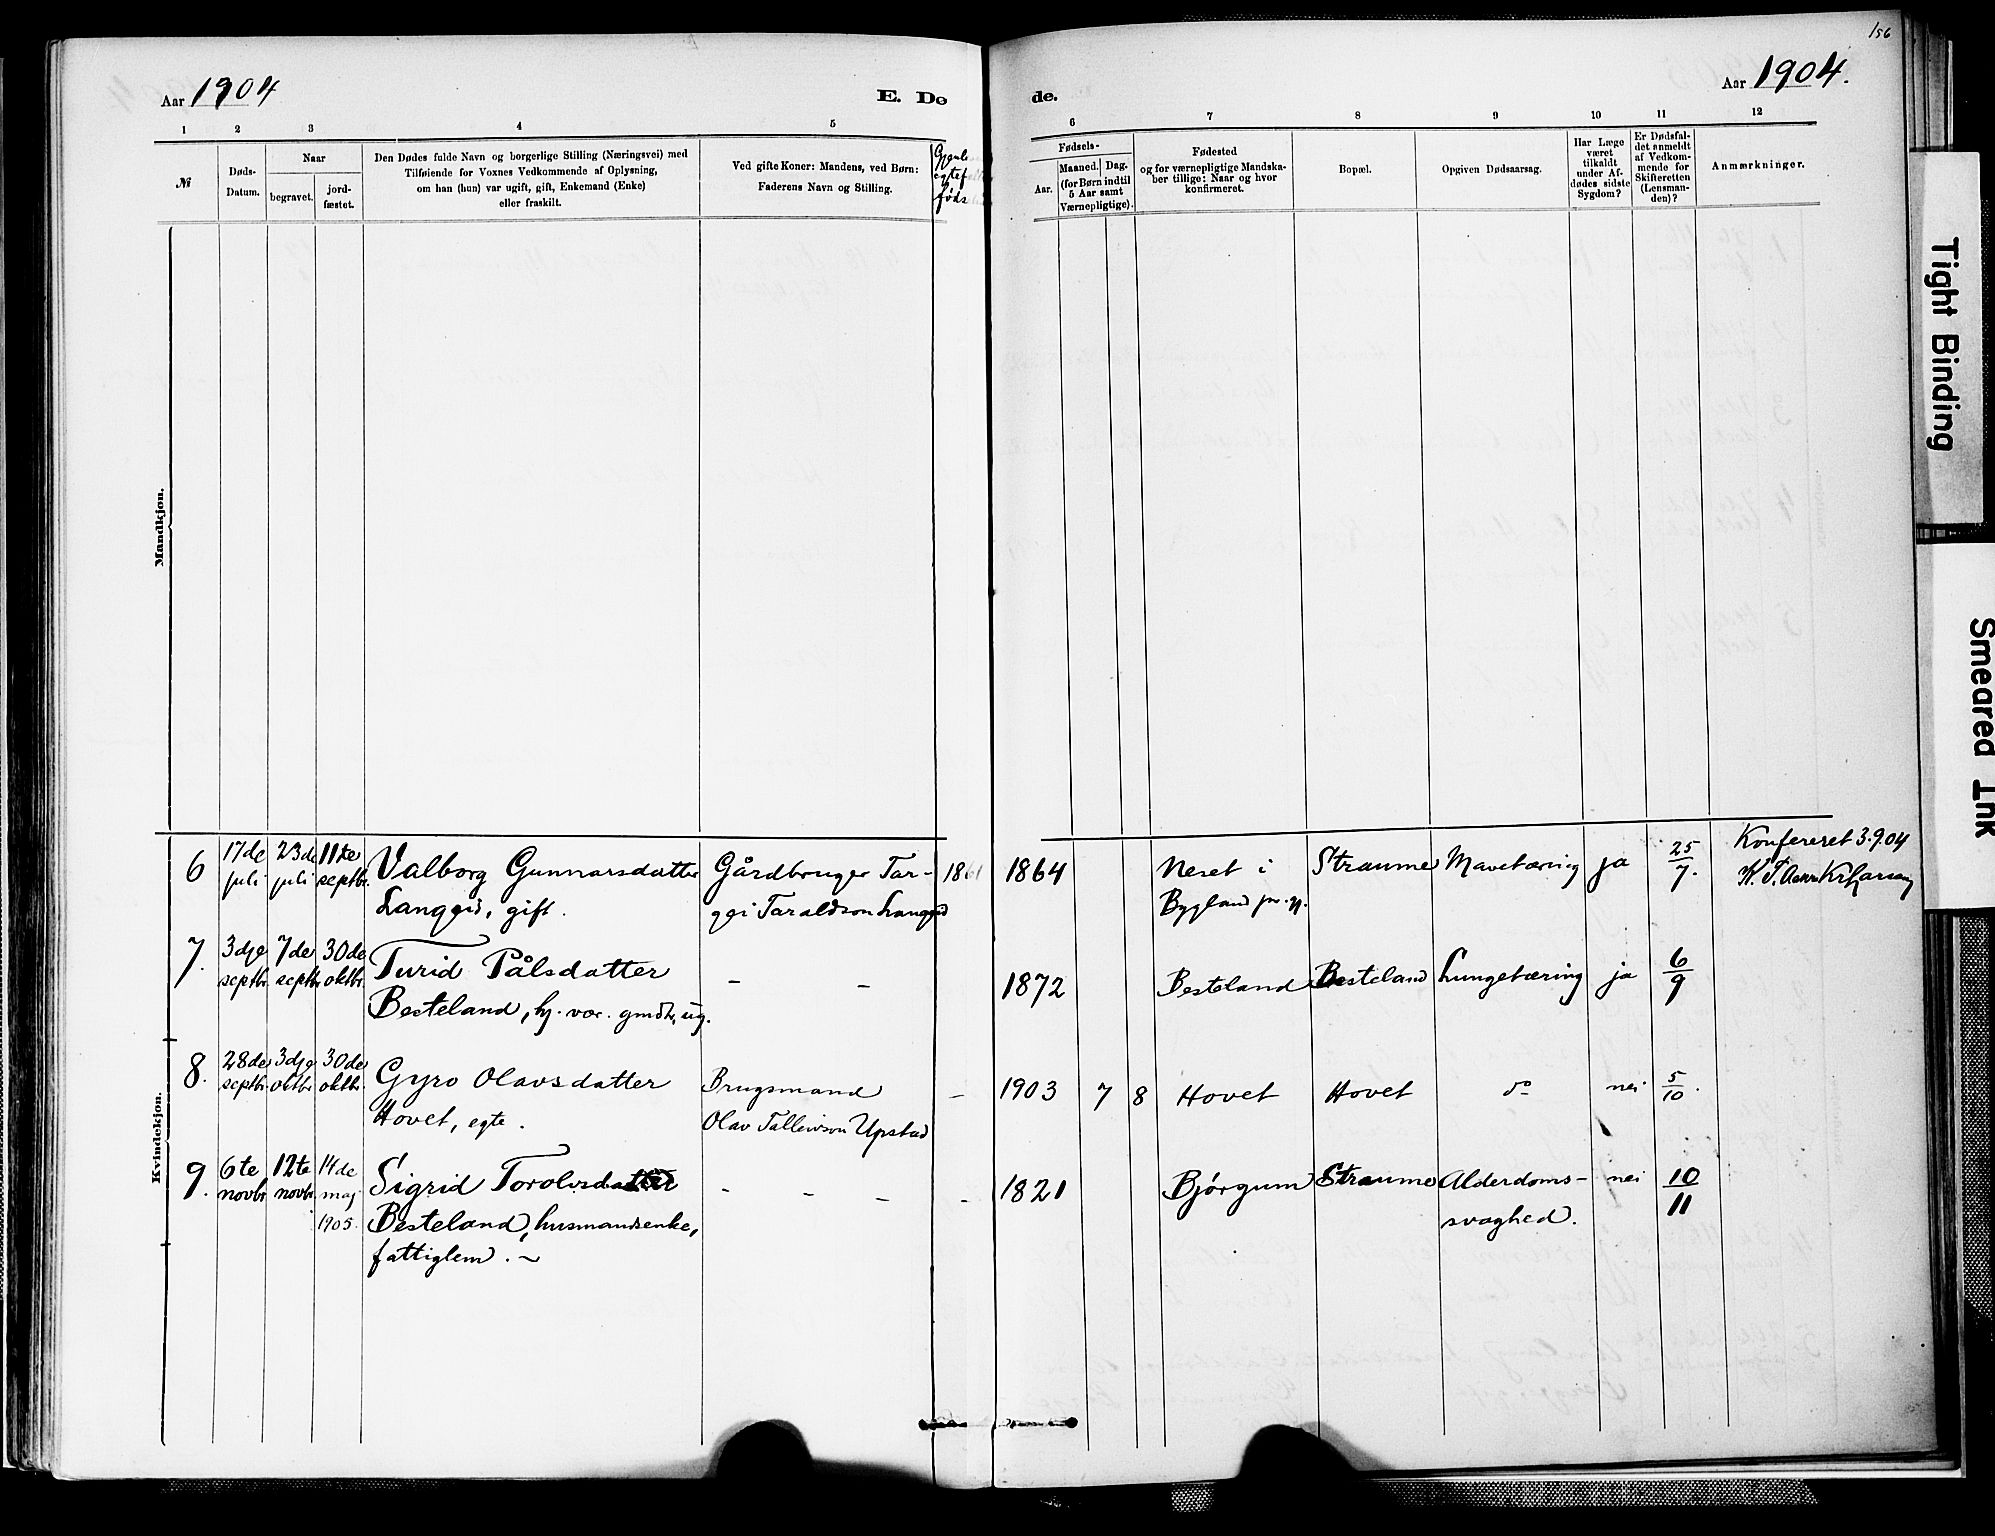 156
Aar 1904
E. Dø
de.
Aar 1904.
1 2 3 4 5
6 7 8 9 10 11 12
№
Døds-
Datum.
Naar
begravet.
jord-
fæstet.
Den Dødes fulde Navn og borgerlige Stilling (Næringsvei) med
Tilføiende for Voxnes Vedkommende af Oplysning,
om han (hun) var ugift, gift, Enkemand (Enke)
eller fraskilt.
Ved gifte Koner: Mandens, ved Børn:
Faderens Navn og Stilling.
Fødsels-
Aar.
Maaned. Dag.
(for Børn indtil
5 Aar samt
Værnepligtige).
Fødested
og for værnepligtige Mandska-
ber tillige: Naar og hvor
konfirmeret.
Bopæl.
Opgiven Dødsaarsag.
Har Læge
været
tilkaldt
under Af-
dødes sidste
Sygdom?
Er Dødsfal-
det anmeldt
af Vedkom-
mende for
Skifteretten
(Lensman-
den)?
Anmærkninger.
Mandkjøn.
Kvindekjøn.
6 17de juli 23de juli 11te septbr. Valborg Gunnarsdatter
Langeid, gift.
Gårdbruger Tar-
gei Taraldson Langeid
1861 1864 Neset i
Bygland pr.gj.
Straume Mavetæring ja 25/7.
Konfereret 3.9.04
7. 3dje septbr. 7de septbr. 30de oktbr. Turid Pålsdatter
Besteland, hj. vær. gmdtr, ug.
- -
1872 Besteland Besteland Lungetæring ja 6/9
8. 28de septbr. 3dje oktbr. 30de oktbr. Gyro Olavsdatter
Hovet, egte.
Brugsmand
Olav Talleivson Upstad
- 1903 7 8 Hovet Hovet do nei 5/10.
9. 6te novbr. 12te novbr. 14de maj 1905. Sigrid Torolvsdatter
Besteland, husmandsenke,
fattiglem. ~
- - - - 1821 Bjørgum Straume Alderdoms-
svaghed.
nei 10/11
Tight Binding
Smeared Ink